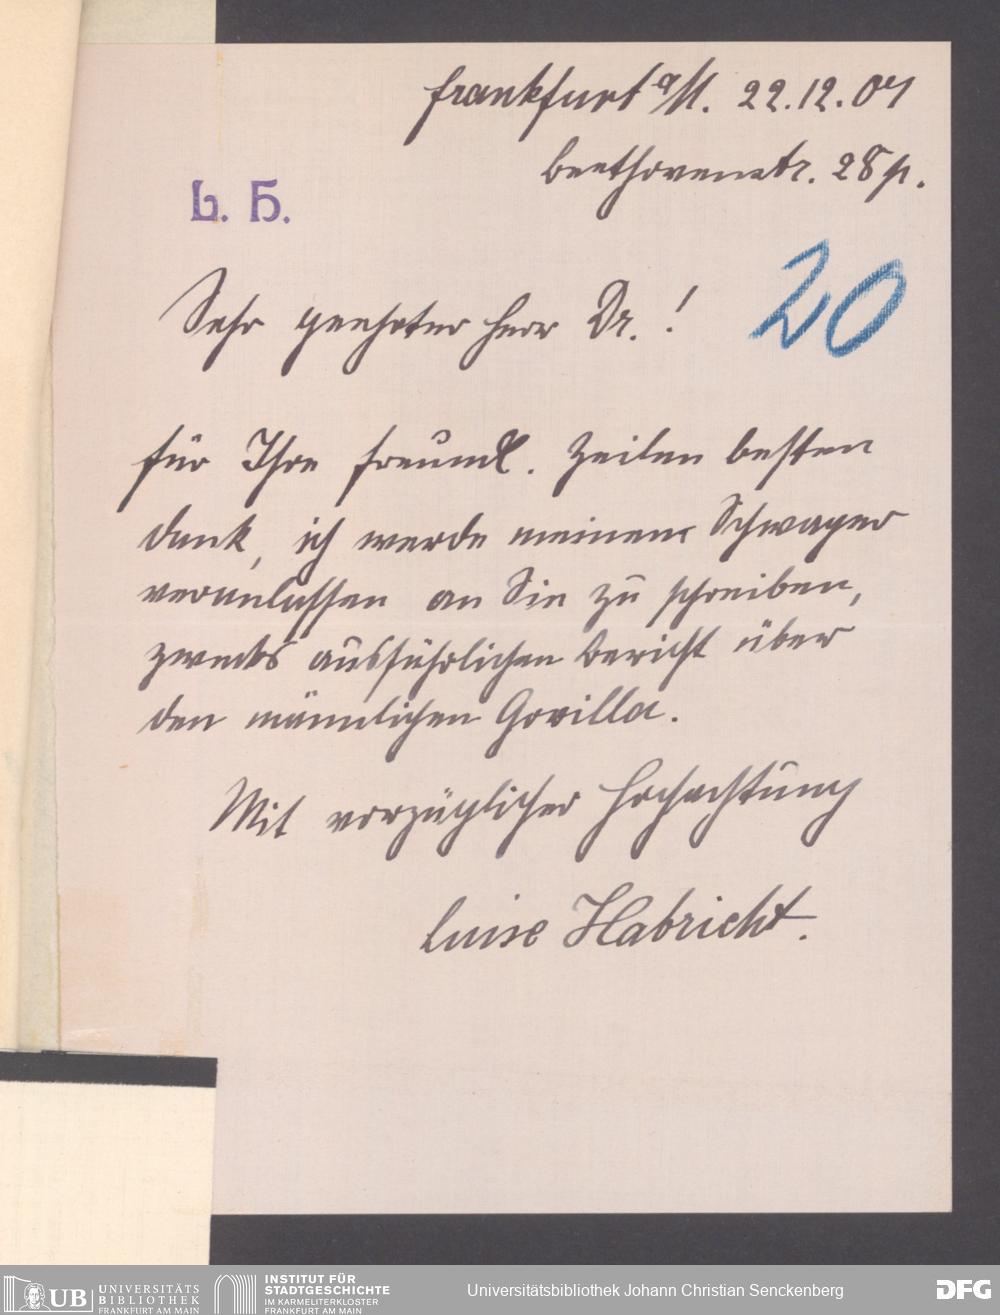 Frankfurt a/M. 22.12.07
Beethovenstr. 28 p.
L. H.
20
Sehr geehrter Herr Dr.!
für Ihre freundl. Zeilen besten
Dank, ich werde meinem Schwager
veranlassen an Sie zu schreiben,
zwecks ausführlichen Bericht über
den männlichen Gorilla.
Mit vorzüglicher Hochachtung
Luise Habricht.
UB UNIVERSITÄTS
BIBLIOTHEK
FRANKFURT AM MAIN
INSTITUT FÜR
STADTGESCHICHTE
IM KARMELITERKLOSTER
FRANKFURT AM MAIN
Universitätsbibliothek Johann Christian Senckenberg
DFG